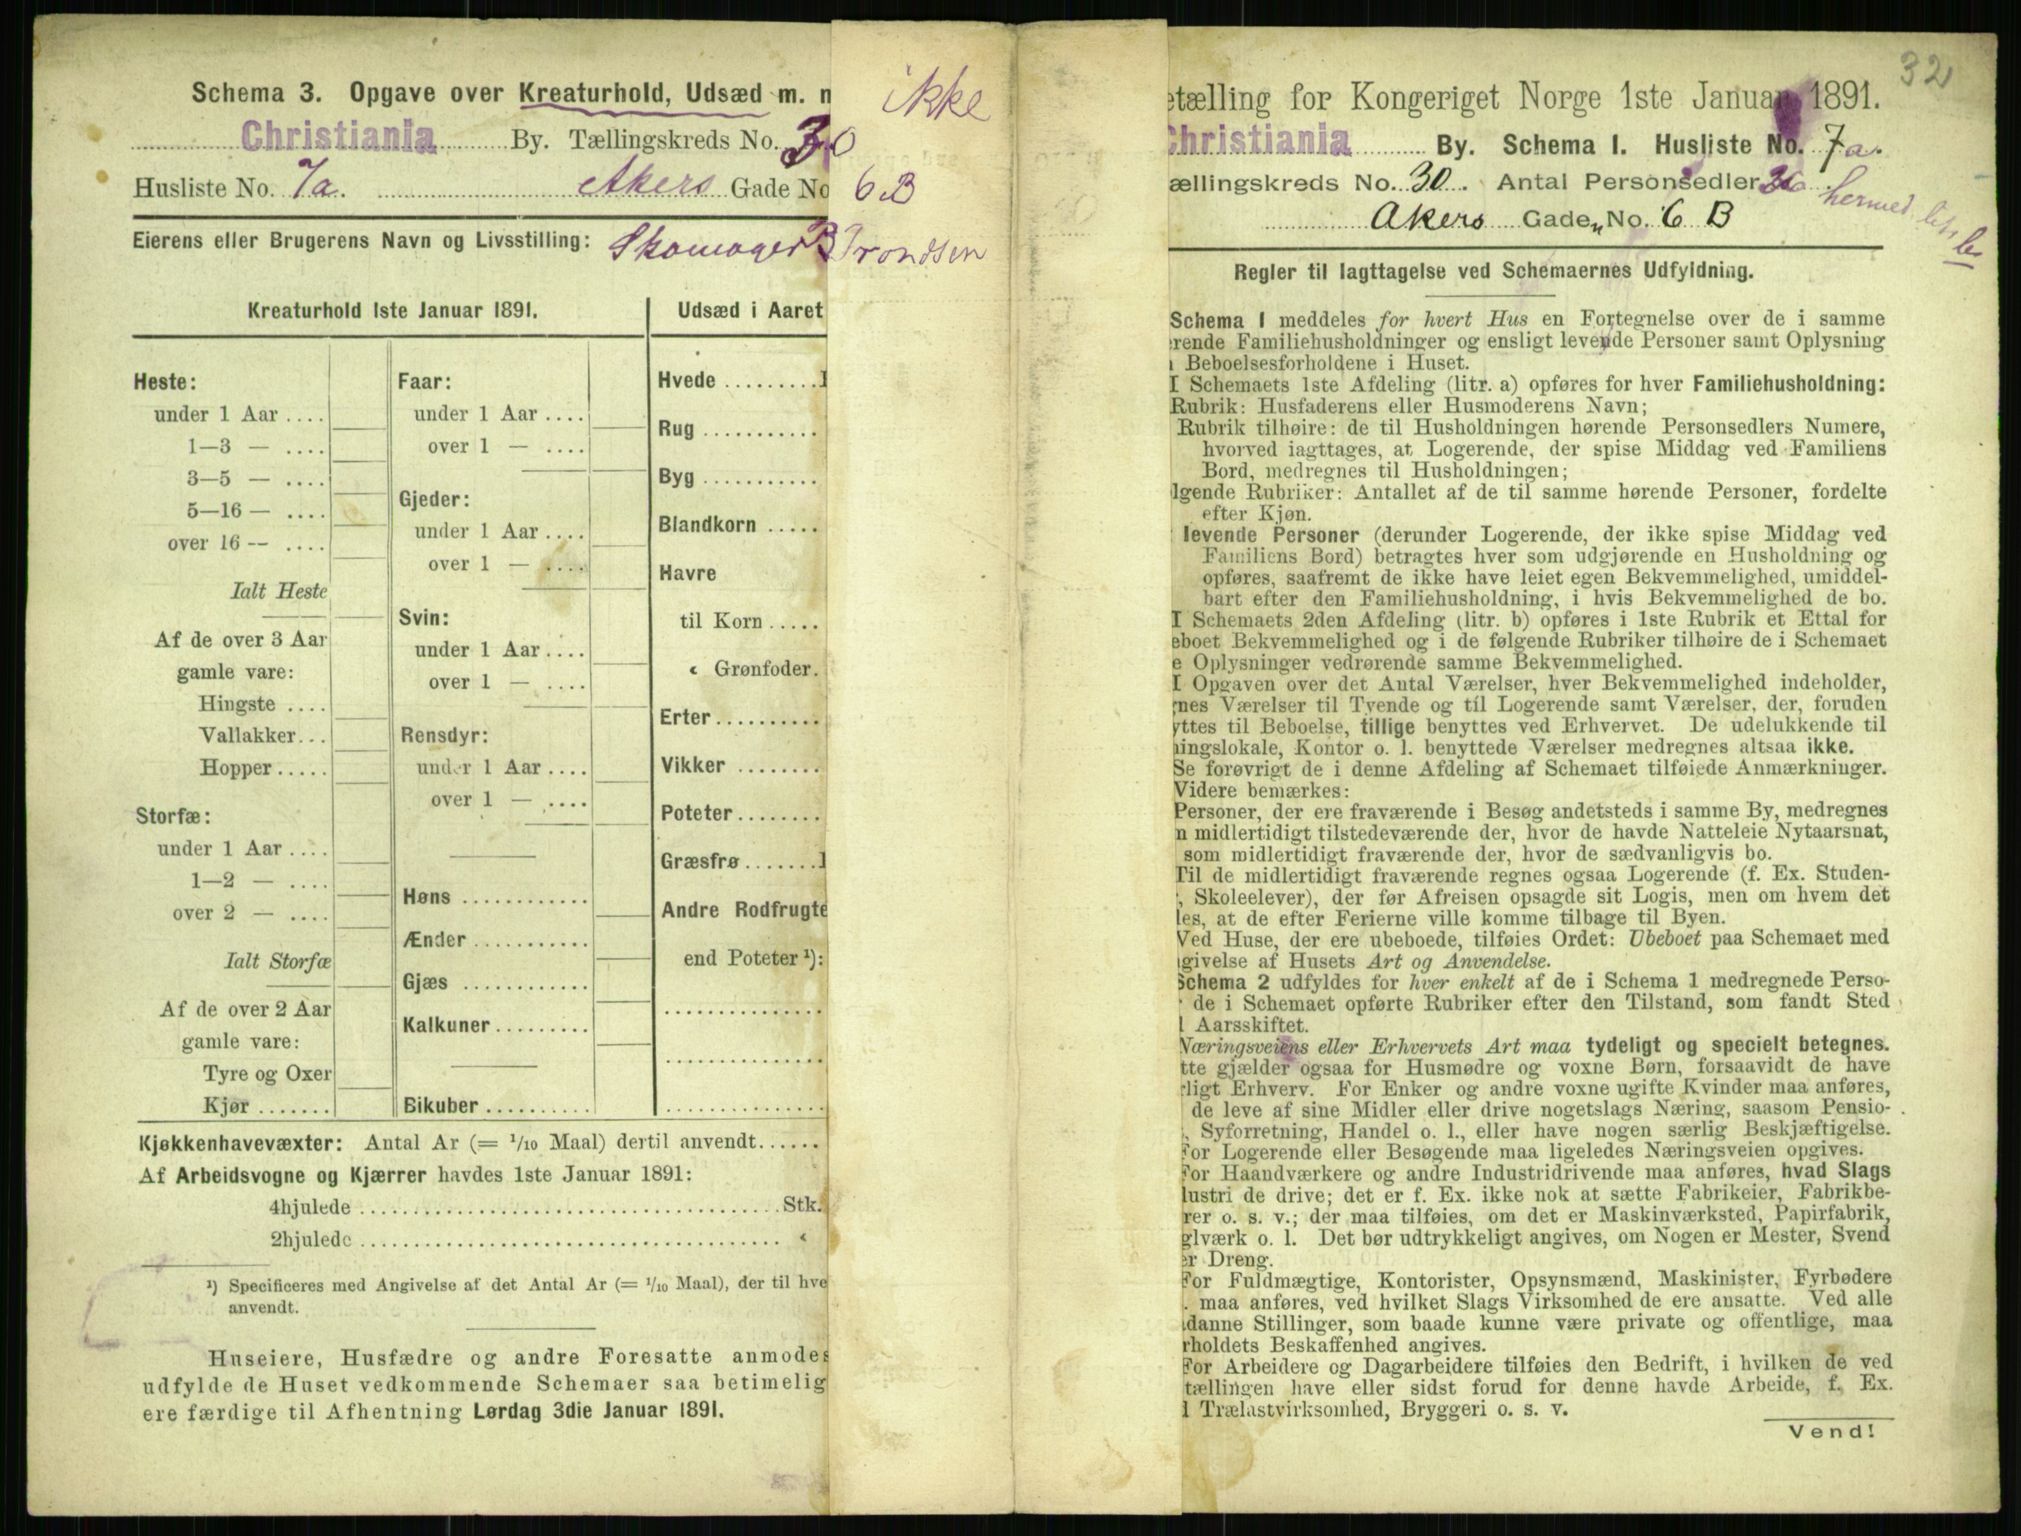 Schema 3. Opgave over Kreaturhold, Udsæd m. m
ikke
Christiania By. Tællingskreds No. 30
Husliste No. 7a. Akers Gade No 6 B
Eierens eller Brugerens Navn og Livsstilling: Skomager B Trondsen
Kreaturhold 1ste Januar 1891.
Heste:
under 1 Aar ....
1—3 — ....
3—5 — ....
5—16 — ....
over 16 — ....
Ialt Heste
Af de over 3 Aar
gamle vare:
Hingste ....
Vallakker...
Hopper.....
Storfæ:
under 1 Aar ....
1—2 — ....
over 2 — ....
Ialt Storfæ
Af de over 2 Aar
gamle vare:
Tyre og Oxer
Kjør.......
Faar:
under 1 Aar ....
over 1 — ....
Gjeder:
under 1 Aar ....
over 1 — ....
Svin:
under 1 Aar ....
over 1 — ....
Rensdyr:
under 1 Aar ....
over 1 — ....
Høns ............
Ænder ...........
Gjæs ............
Kalkuner.........
Bikuber..........
Udsæd i Aaret
Hvede .........
Rug ...........
Byg ...........
Blandkorn .....
Havre
til Korn .....
« Grønfoder.
Erter..........
Vikker ........
Poteter........
Græsfrø........
Andre Rodfrugte
end Poteter ¹):
Kjøkkenhavevæxter: Antal Ar (= 1/10 Maal) dertil anvendt......
Af Arbeidsvogne og Kjærrer havdes 1ste Januar 1891:
4hjulede ........................................Stk.
2hjulede ........................................ «
¹) Specificeres med Angivelse af det Antal Ar (= 1/10 Maal), der til hve
anvendt.
Huseiere, Husfædre og andre Foresatte anmodes
udfylde de Huset vedkommende Schemaer saa betimelig
ere færdige til Afhentning Lørdag 3die Januar 1891.
32
etælling for Kongeriget Norge 1ste Januar 1891.
Christiania By. Schema I. Husliste No. 7a.
ællingskreds No. 30. Antal Personsedler
Akers Gade No. 6 B
Regler til Iagttagelse ved Schemaernes Udfyldning.
Schema 1 meddeles for hvert Hus en Fortegnelse over de i samme
rende Familiehusholdninger og ensligt levende Personer samt Oplysning
Beboelsesforholdene i Huset.
I Schemaets 1ste Afdeling (litr. a) opføres for hver Familiehusholdning:
Rubrik: Husfaderens eller Husmoderens Navn;
Rubrik tilhøire: de til Husholdningen hørende Personsedlers Numere,
hvorved iagttages, at Logerende, der spise Middag ved Familiens
Bord, medregnes til Husholdningen;
lgende Rubriker: Antallet af de til samme hørende Personer, fordelte
efter Kjøn.
levende Personer (derunder Logerende, der ikke spise Middag ved
Familiens Bord) betragtes hver som udgjørende en Husholdning og
opføres, saafremt de ikke have leiet egen Bekvemmelighed, umiddel-
bart efter den Familiehusholdning, i hvis Bekvemmelighed de bo.
I Schemaets 2den Afdeling (litr. b) opføres i 1ste Rubrik et Ettal for
eboet Bekvemmelighed og i de følgende Rubriker tilhøire de i Schemaet
e Oplysninger vedrørende samme Bekvemmelighed.
I Opgaven over det Antal Værelser, hver Bekvemmelighed indeholder,
gnes Værelser til Tyende og til Logerende samt Værelser, der, foruden
yttes til Beboelse, tillige benyttes ved Erhvervet. De udelukkende til
ningslokale, Kontor o. l. benyttede Værelser medregnes altsaa ikke.
Se forøvrigt de i denne Afdeling af Schemaet tilføiede Anmærkninger.
Videre bemærkes:
Personer, der ere fraværende i Besøg andetsteds i samme By, medregnes
n midlertidigt tilstedeværende der, hvor de havde Natteleie Nytaarsnat,
som midlertidigt fraværende der, hvor de sædvanligvis bo.
Til de midlertidigt fraværende regnes ogsaa Logerende (f. Ex. Studen-
, Skoleelever), der før Afreisen opsagde sit Logis, men om hvem det
les, at de efter Ferierne ville komme tilbage til Byen.
Ved Huse, der ere ubeboede, tilføies Ordet: Ubeboet paa Schemaet med
givelse af Husets Art og Anvendelse.
Schema 2 udfyldes for hver enkelt af de i Schema 1 medregnede Perso-
de i Schemaet opførte Rubriker efter den Tilstand, som fandt Sted
l Aarsskiftet.
Næringsveiens eller Erhvervets Art maa tydeligt og specielt betegnes.
tte gjælder ogsaa for Husmødre og voxne Børn, forsaavidt de have
rligt Erhverv. For Enker og andre voxne ugifte Kvinder maa anføres,
de leve af sine Midler eller drive nogetslags Næring, saasom Pensio-
, Syforretning, Handel o. l., eller have nogen særlig Beskjæftigelse.
For Logerende eller Besøgende maa ligeledes Næringsveien opgives.
For Haandværkere og andre Industridrivende maa anføres, hvad Slags
lustri de drive; det er f. Ex. ikke nok at sætte Fabrikeier, Fabrikbe-
rer o. s. v.; der maa tilføies, om det er Maskinværksted, Papirfabrik,
glværk o. l. Det bør udtrykkeligt angives, om Nogen er Mester, Svend
er Dreng.
For Fuldmægtige, Kontorister, Opsynsmænd, Maskinister, Fyrbødere
. maa anføres, ved hvilket Slags Virksomhed de ere ansatte. Ved alle
danne Stillinger, som baade kunne være private og offentlige, maa
rholdets Beskaffenhed angives.
For Arbeidere og Dagarbeidere tilføies den Bedrift, i hvilken de ved
tællingen have eller sidst forud for denne havde Arbeide, f. Ex.
l Trælastvirksomhed, Bryggeri o. s. v.
Vend!